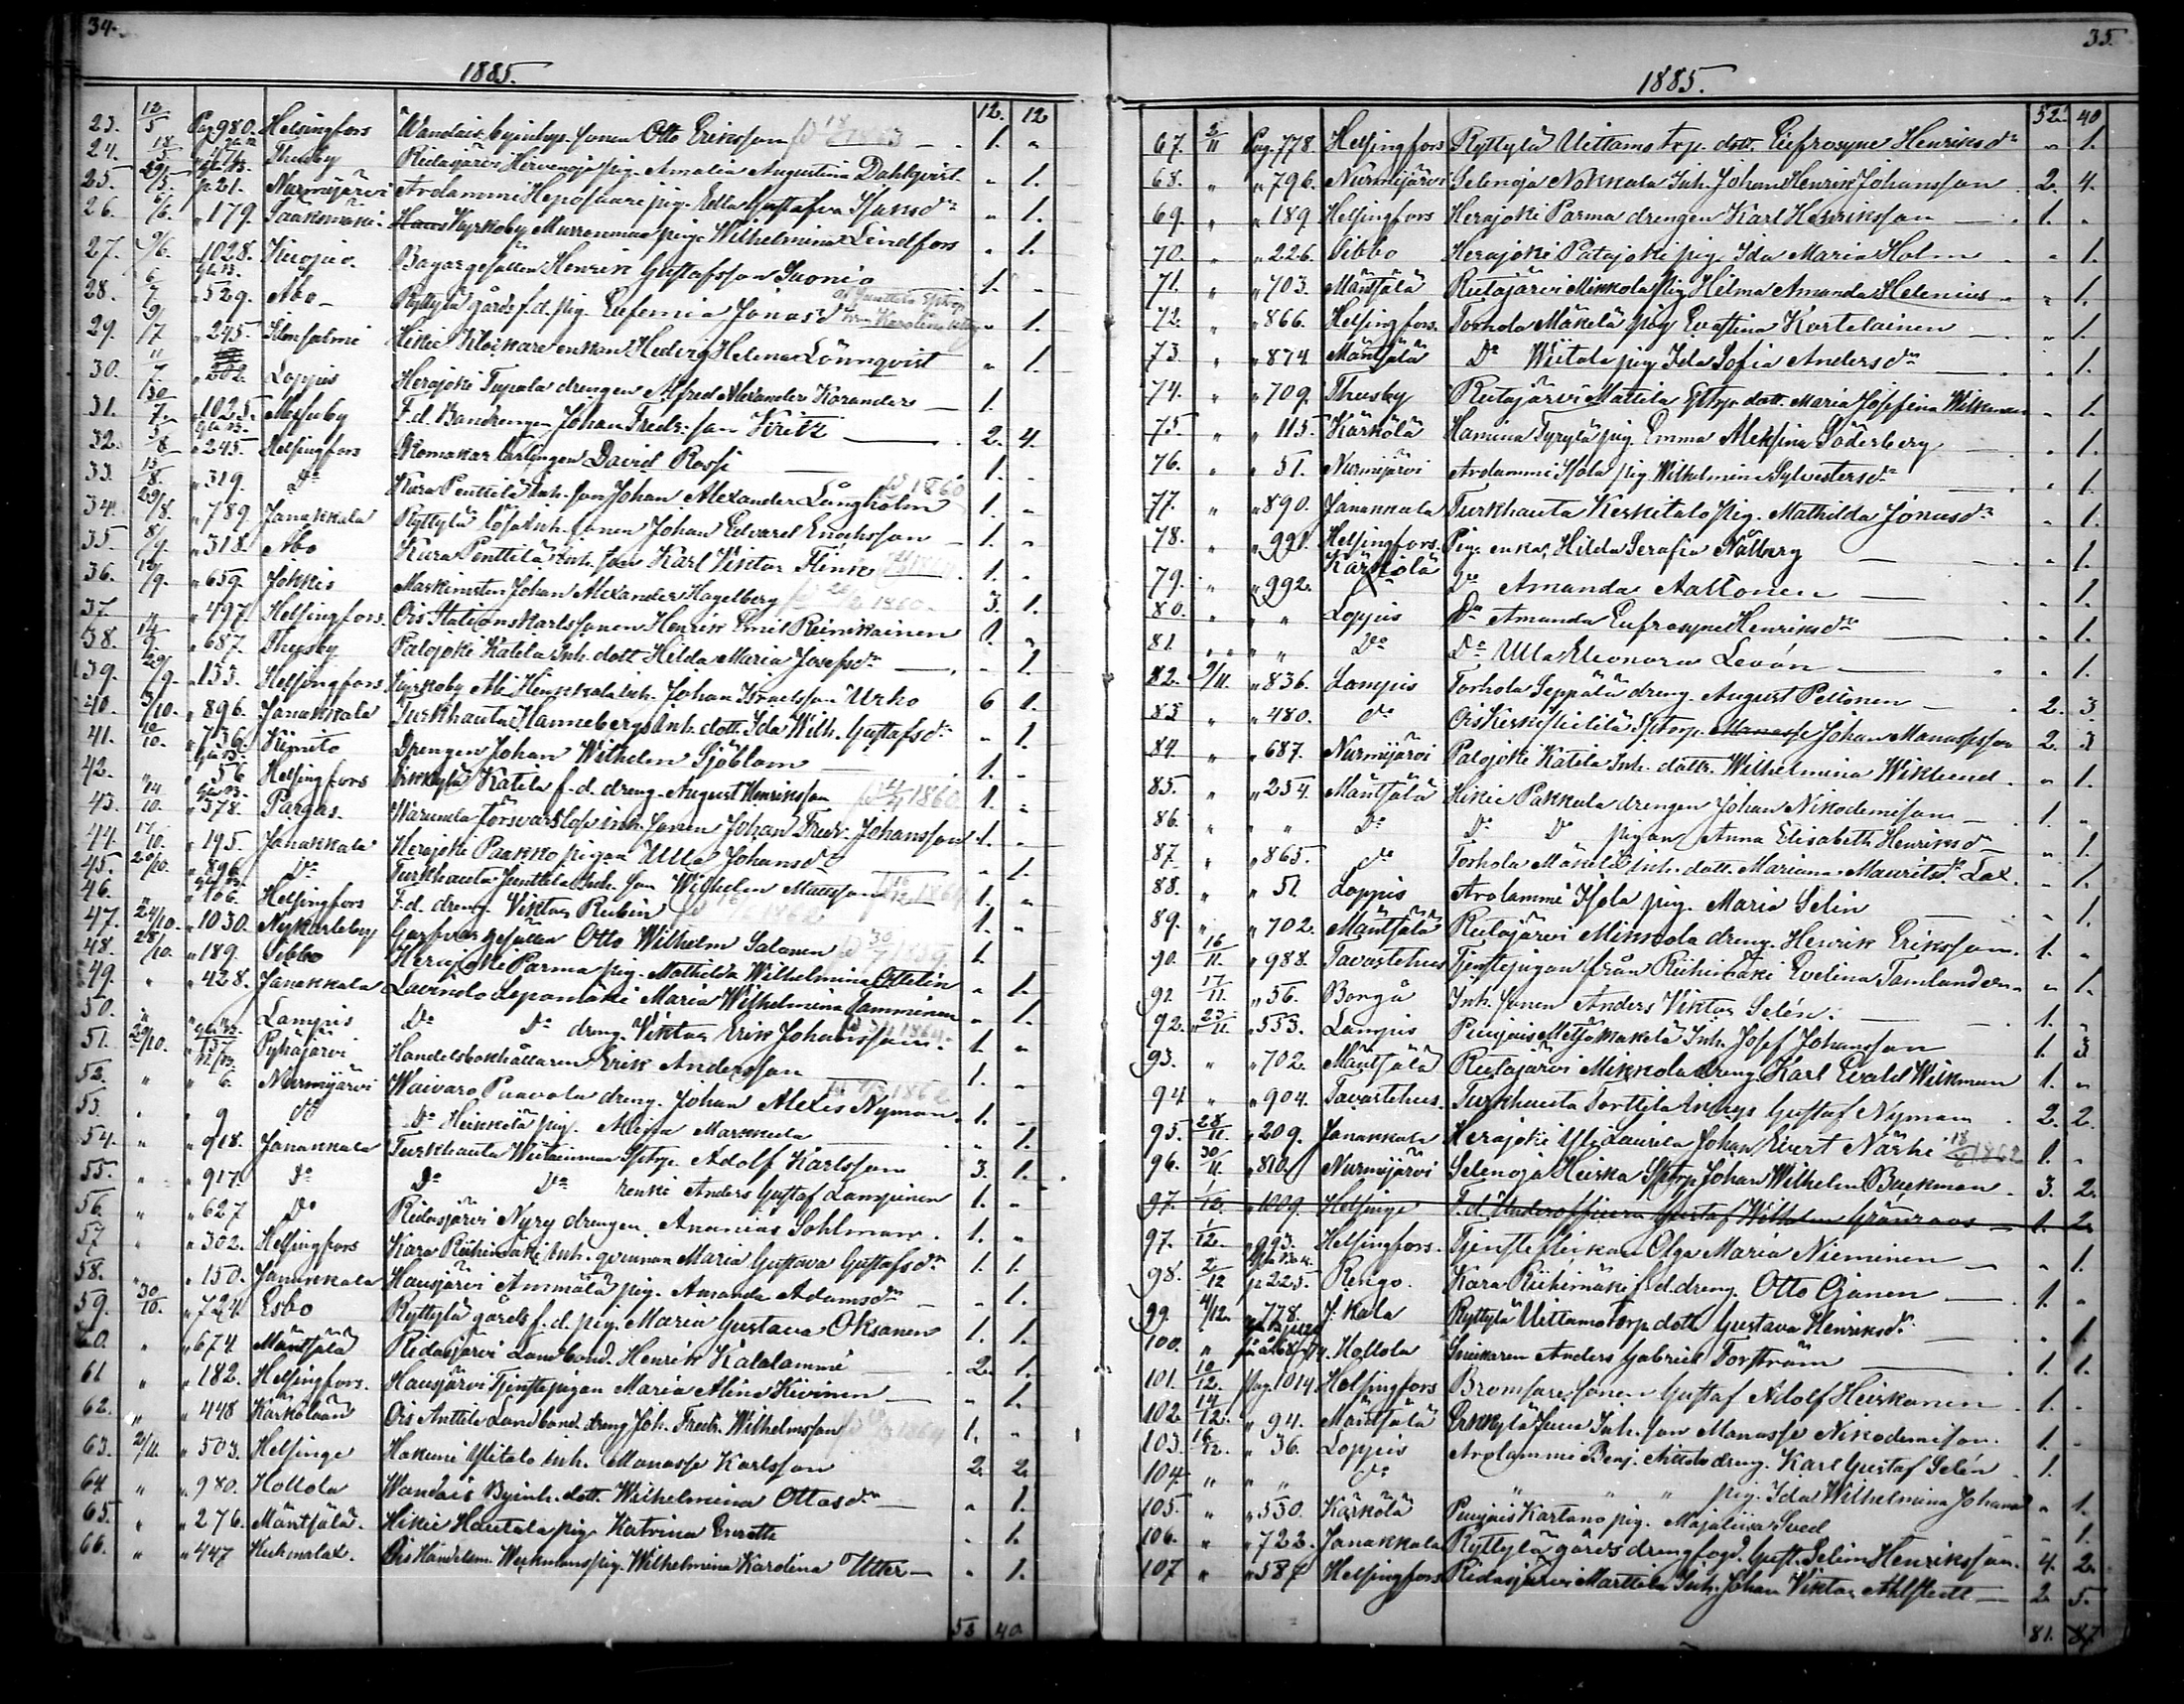 34.
1885.
12. 12
23. 12/5 Pag 980. Helsingfors Wandais byinhys. sonen Otto Eriksson 1.
24. 18/5 Thusby Ridasjärvi Hirvenoja pig. Amalia Augustina Dahlqvist 1.
25. 29/5 p 21. Nurmijärvi Arolammi Heposuari pig. Gustafva 1.
26. 6/6. 179. Sääksmäki Kyrkoby pig. Wilhelmina Lindfors 1.
27. 9/6. 1028. Kuopio Bagargesällen Henrik Gustafsson Suonio 1.
28. 6/7 529. Abo Ryttylä gårds f.d. pig. Eufemia Jonasdr 1.
29. 9/7 245. Idensalmi Hikiä Klockare enkan Hedvig Helena Lönnqvist 1.
30. 11/7. 302. Loppis Herajoki Tupala drengen Alfred Alexander Korander 1.
31. 30/7. 1025. Messuby F.d. Bandrengen Johan Fredr. son Kiritz 2. 4.
32. 5/8 245. Helsingfors Skomakar lärlingen David Rossi 1.
33. 15/8. 319. Do Kara Penttilä Inh. son Johan Alexander Långholm 1860 1.
34. 29/8. 789. Janakkala Ryttylä lösa Inh. sonen Johan Edvard Enochsson 1.
35. 8/9. 318. Abo Kara Penttilä Inh. son Karl Viktor Flink 1.
36. 12/9. 659. Jokkis Maskinisten Johan Alexander Hagelberg 1860 3. 1.
37. " 497. Helsingfors. Ois Stationskarlssonen Henrik Emil Reinikainen 1.
38. 14/9 687. Thusby Palojoki Katila Inh. dott Hilda Maria Josefsdr 1.
39. 29/9. 133. Helsingfors Kyrkoby Ali Hinkkala Inh. Johan Israelsson Urho 6 1.
40. 3/10. 896. Janakkala Turkhauta Hanneberg Inh. dott. Ida Wilh. Gustafsdr 1.
41. 10/10. 736. Kimito Drengen Johan Wilhelm Sjöblom 1.
42. " 56 Helsingfors Erkkylä Katila f.d. dreng. August Henriksson 1860 1.
43. 14/10. 378. Pargas. Försvarslös inh. sonen Johan Fredr. Johansson 1.
44. 17/10. 195. Janakkala Herajoki Paakko pigan Ulla Johansdr 1.
45. 20/10. 896 Do Turkhauta Junttila Inh. son Wilhelm Mattsson 1864 1.
46. " 166. Helsingfors F.d. dreng. Viktor Rubin 1862 1.
47. 24/10. 1030. Nykarleby Garfvargesällen Otto Wilhelm Salonen 30/7 1859. 1.
48. 28/10. 189. Sibbo Herajoki Parma pig. Mathilda Wilhelmina Ottelin 1.
49. " 428. Janakkala Lavinto Lepomäki Maria Wilhelmina Tamminen 1.
50. " " Lampis Do Do dreng. Viktor Erik Johansson 1864 1.
51. 29/10. Pyhäjärvi Handelsbokhållaren Erik Andersson 1.
52. " 6. Nurmijärvi Waivaro Paavola dreng. Johan Alexis Nyman 1862 1.
53. " 9 Do Do Heinkilä pig. Miina Markkula 1.
54. " 918. Janakkala Turkhauta Wiitainmaa Sptorp. Adolf Karlsson 3. 1.
55. " 917. Do Do Do renki Anders Gustaf Lampinen 1.
56. " 627 Do Ridasjärvi Nyry drengen Ananias Sohlman 1.
57 " 302. Helsingfors Kara Riihimäki Inh. qvinnan Maria Gustava Gustafsdr 1. 1.
58. " 150. Janakkala Hausjärvi Ammälä pig. Amanda Adamsdr 1.
59. 30/10. 724. Esbo Ryttylä gårds f.d. pig. Maria Gustava Oksanen 1. 1.
60. " 674 Mäntsälä Ridasjärvi Landbond. Henrik Kalalammi 2. 1.
61 " 182. Helsingfors. Hausjärvi Tjenstepigan Maria Alina Kivinen 1.
62. " 448 Kärkölä Ois Anttila Landbond. dreng Joh. Fredr. Wilhelmsson 1864 1.
63. 2/11. 503. Helsinge Hakuni Ylitalo Inh. Manasse Karlsson 2. 2.
64 " 980. Hollola Wandais Byinh. dott. Wilhelmina Ottosdr 1.
65. " 276. Mäntsälä. Hikiä Hautala pig. Katrina 1.
66. " 447 Kuhmalax. Ois Handelsm. Weckmans pig. Wilhelmina Karolina Utter 1.
53 40
35.
1885.
52. 40
67. 2/11 Pag. 778 Helsingfors Ryttylä Uittamo torp. dott. Eufrosyne Henriksdr 1.
68. " 796. Nurmijärvi Selenoja Nokkala Inh. Johan Henrik Johansson 2. 4.
69. " 189. Helsingfors Herajoki Parma drengen Karl Henriksson 1.
70. " 226. Sibbo Herajoki Patajoki pig. Ida Maria Holm 1.
71. " 703. Mäntsälä Ridasjärvi Mikkola pig Hilma Amanda Helenius 1.
72. " 866. Helsingfors. Torhola Mäkelä pig Evastina Kortelainen 1.
73. " 874 Mäntsälä Do Wiitala pig. Ida Sofia Andersdr 1.
74. " 709. Thusby Ridasjärvi Mattila Sptorp. dott. Maria Josefina Wilkman 1.
75 " 115. Kärkölä Hamina Syrylä pig. Emma Alexina Söderberg 1.
76. " 51. Nurmijärvi Arolammi Isola pig. Wilhelmina Sylvestersdr 1.
77. " 890. Janakkala Turkhauta Keskitalo pig. Mathilda Jonasdr 1.
78. " 991. Helsingfors. Pig. enka, Hilda Serafia Nålberg 1.
79. " 992. Kärkölä Do Amanda Aaltonen 1.
80. " " Loppis Do Amanda Eufrosyne Henriksdr 1.
81. " " Do Do Ulla Eleonora Levón 1.
82. 9/11. 836. Lampis Torhola Seppälä dreng. August Peltonen 2. 3
83 " 480. Do Ois Sptorp. Johan Manasseson 2. 3
84. " 687. Nurmijärvi Palojoki Katila Inh. dottr. Wilhelmina Wiklund. 1.
85. " 254. Mäntsälä Hikiä Pakkala drengen Johan Nikodemison 1.
86. " " Do Do Do pigan Anna Elisabeth Henriksdr 1.
87. " 865. Do Torhola Mäkelä Inh. dott. Mariana Mauritsdr Lax. 1.
88. " 51 Loppis Arolammi Isola pig. Maria Selin 1.
89. " 702. Mäntsälä Ridasjärvi Mikkola dreng. Henrik Eriksson. 1.
90. 16/11. 988. Tavastehus Tjenstepigan från Riihimäki Evelina Tamlander 1.
92 17/11. 56. Borgå Inh. sonen Anders Viktor Selén. 1.
92. 23/11. 553. Lampis Puujais Metsämäkelä Inh. Josef Johansson 1. 3
93. " 702. Mäntsälä Ridasjärvi Mikkola dreng. Karl Evald Wilkman 1.
94 " 904. Tavastehus. Turkhauta Torttila Inhys Gustaf Nyman 2. 2.
95. 28/11. 209. Janakkala Herajoki Yli Laurila Johan Evert Närhi 18/8 1862 1.
96. 30/11. 810. Nurmijärvi Selenoja Heiska Sptorp Johan Wilhelm Backman 3. 2.
97. 1/12. 1009. Helsinge F.d. Underofficeren Gustaf Wilhelm Grönroos 1. 2
97. 1/12. 993. Helsingfors. Tjensteflickan Olga Maria Nieminen 1.
98. 2/12 p 225. Rengo. Kara Riihimäki f.d. dreng. Otto Ojanen 1.
99 4/12. 778. J.kala Ryttylä Uittamo Torp. dott Gustava Henriksdr 1
100. " Hollola Snickaren Anders Gabriel Forström 1. 1.
101. 10/12. Pag. 1014 Helsingfors Bromsaresonen Gustaf Adolf Heiskanen 1.
102 14/12. 94. Mäntsälä Erkkylä Inh. son Manasse Nikodemison. 1.
103. 16/12. 36. Loppis Arolammi Benj. Attola dreng. Karl Gustaf Selén 1.
104 " " Do " " " pig. Ida Wilhelmina Johansd 1.
105. " 550. Kärkölä Puujais Kartano pig. Majaliisa Sved 1.
106. " 722. Janakkala Ryttylä gårds drengfogd. Gust. Selim Henriksson. 4. 2.
107 " 587 Helsingfors Ridasjärvi Marttila Inh. Johan Viktor Ahlstedt 2. 5.
81. 87